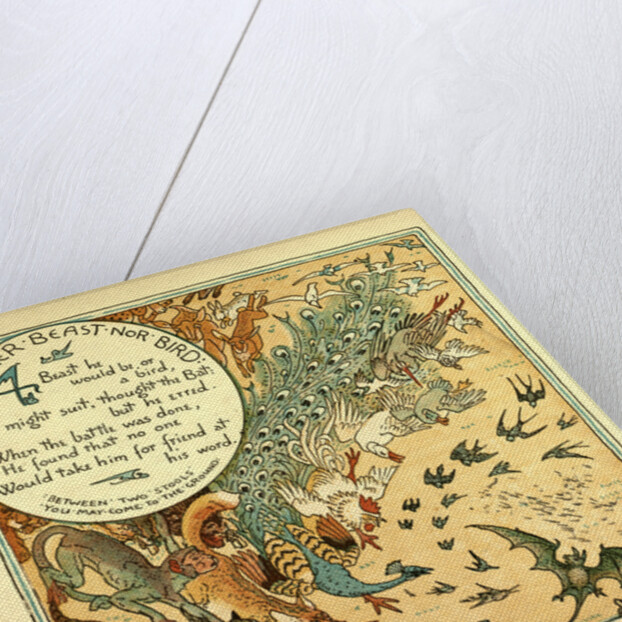 ER·BEAST·NOR·BIRD·
A Beast he
would be, or
a bird,
might suit, thought the Bat:
but he erred.
When the battle was done,
He found that no one
Would take him for friend at
his word.
'BETWEEN·TWO STOOLS'
YOU·MAY·COME·TO·THE·GROUND